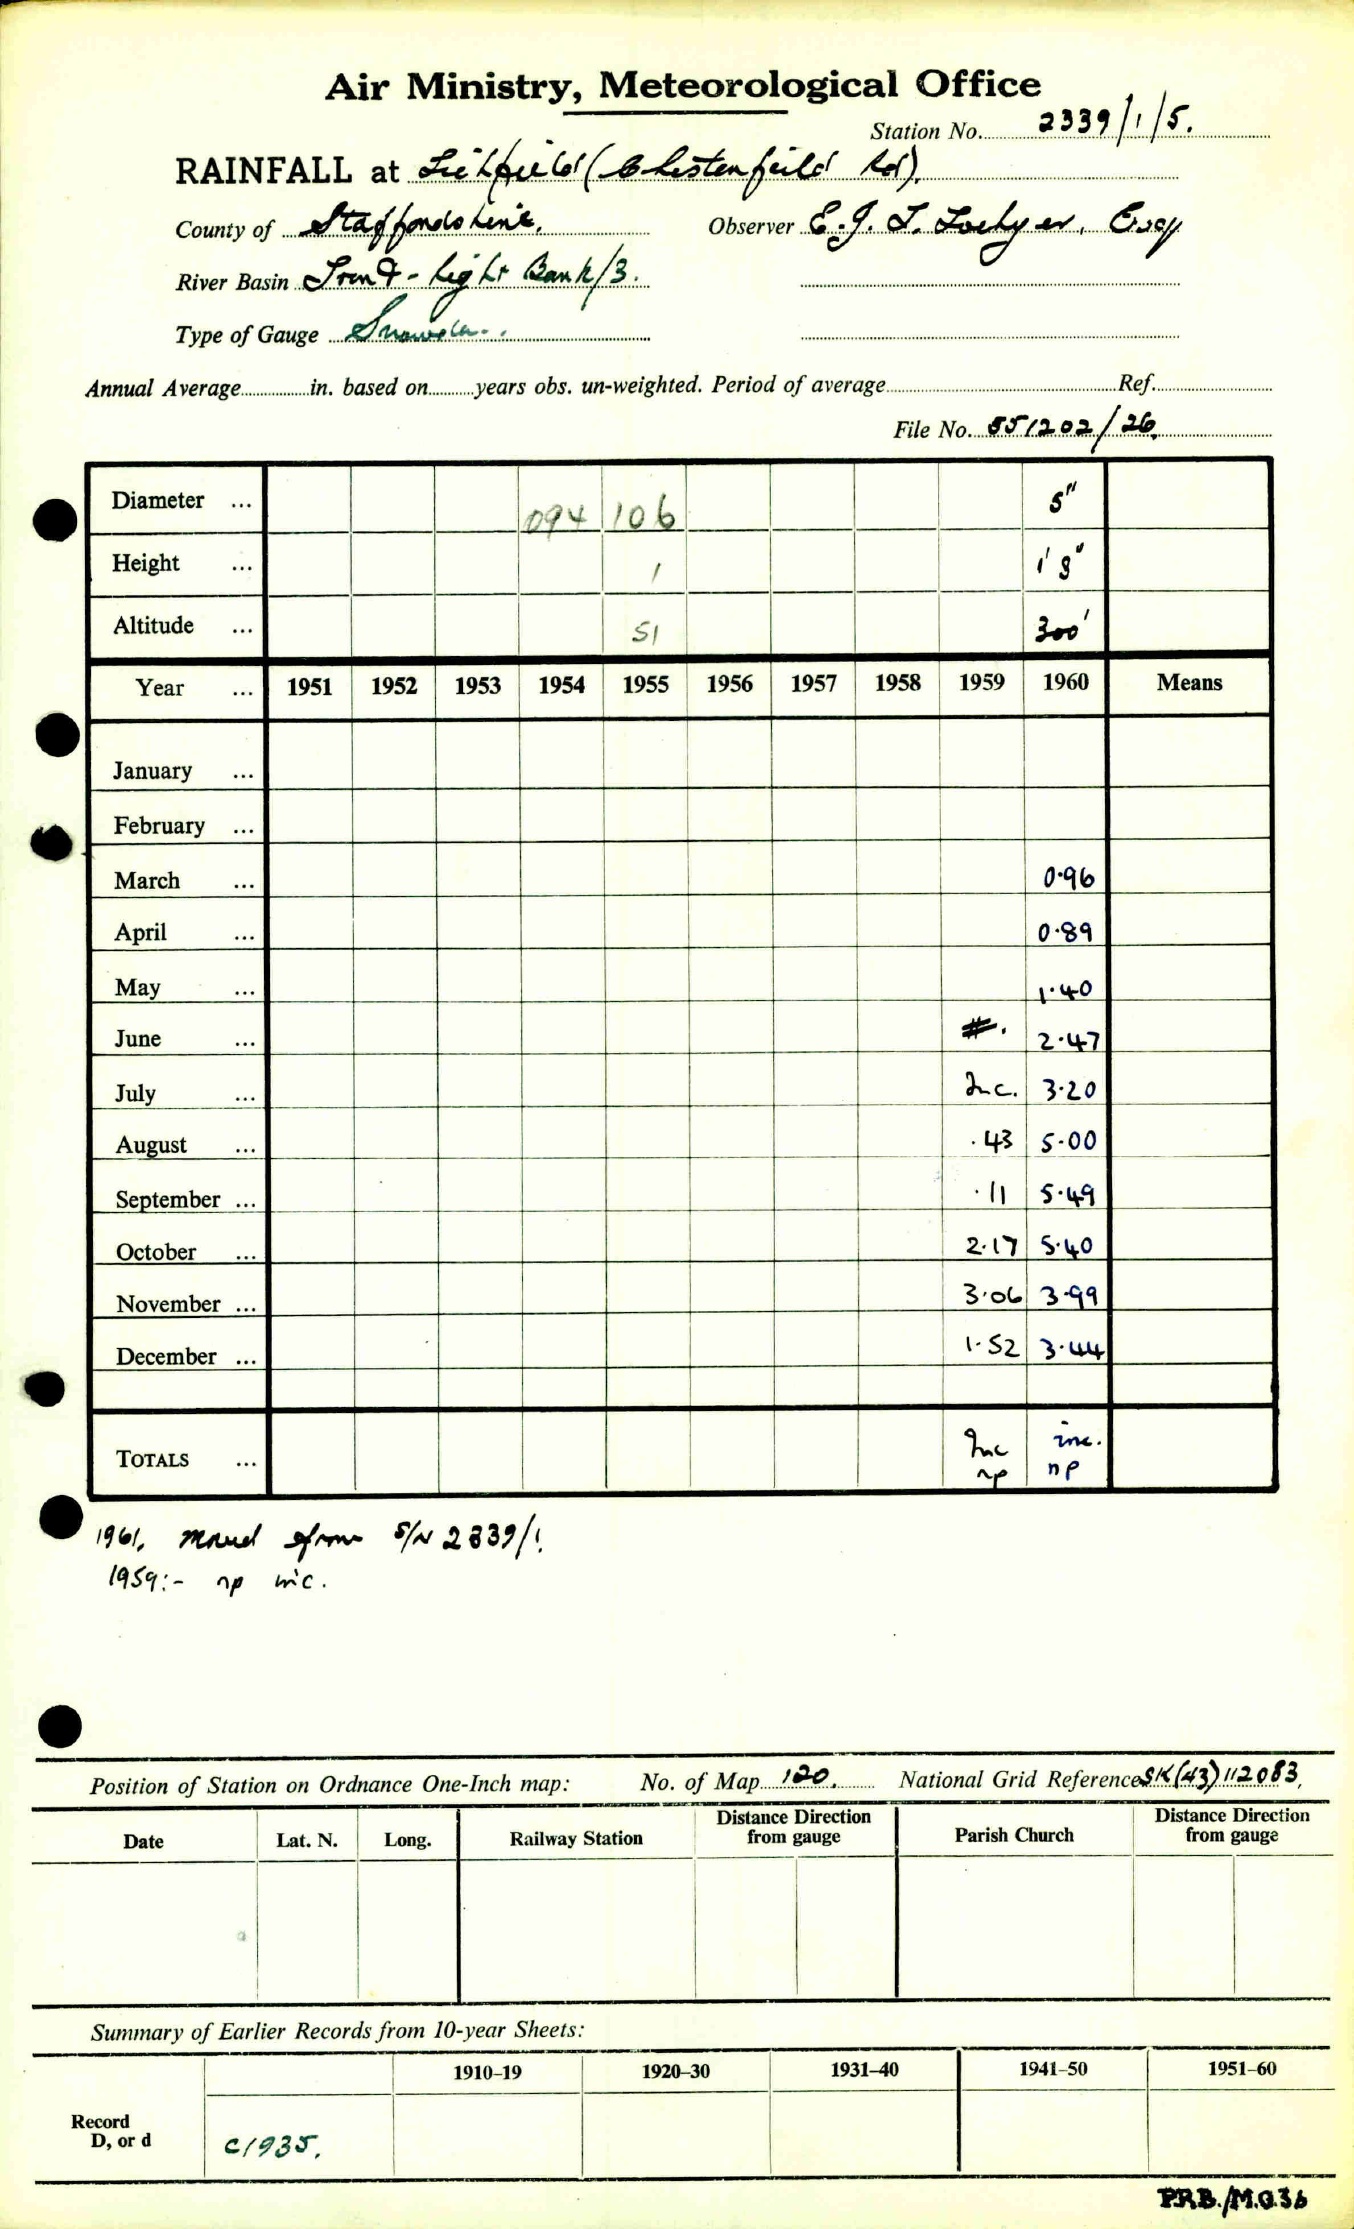 Air Ministry, Meteorological Office
Station No. 2339/1/5.
RAINFALL at Lichfield (Chesterfield Rd).
County of Staffordshire. Observer E. J. T. Esq
River Basin Trent - Right Bank/3.
Type of Gauge Snowdon.
Annual Average in. based on years obs. un-weighted. Period of average Ref.
File No. 551202/26.
Diameter ... 094 106 5"
Height ... 1 1' 3"
Altitude ... 51 300'
Year ... 1951 1952 1953 1954 1955 1956 1957 1958 1959 1960 Means
January ...
February ...
March ... 0.96
April ... 0.89
May ... 1.40
June ... 2.47
July ... Inc. 3.20
August ... .43 5.00
September ... .11 5.49
October ... 2.17 5.40
November ... 3.06 3.99
December ... 1.52 3.44
TOTALS ... Inc inc.
np np
1961. Moved from S/N 2339/1.
1959:- np inc.
Position of Station on Ordnance One-Inch map: No. of Map 120. National Grid Reference SK(43)112083.
Date Lat. N. Long. Railway Station Distance Direction from gauge Parish Church Distance Direction from gauge
Summary of Earlier Records from 10-year Sheets:
1910–19 1920–30 1931–40 1941–50 1951–60
Record
D, or d C1935.
P.R.B./M.O.36